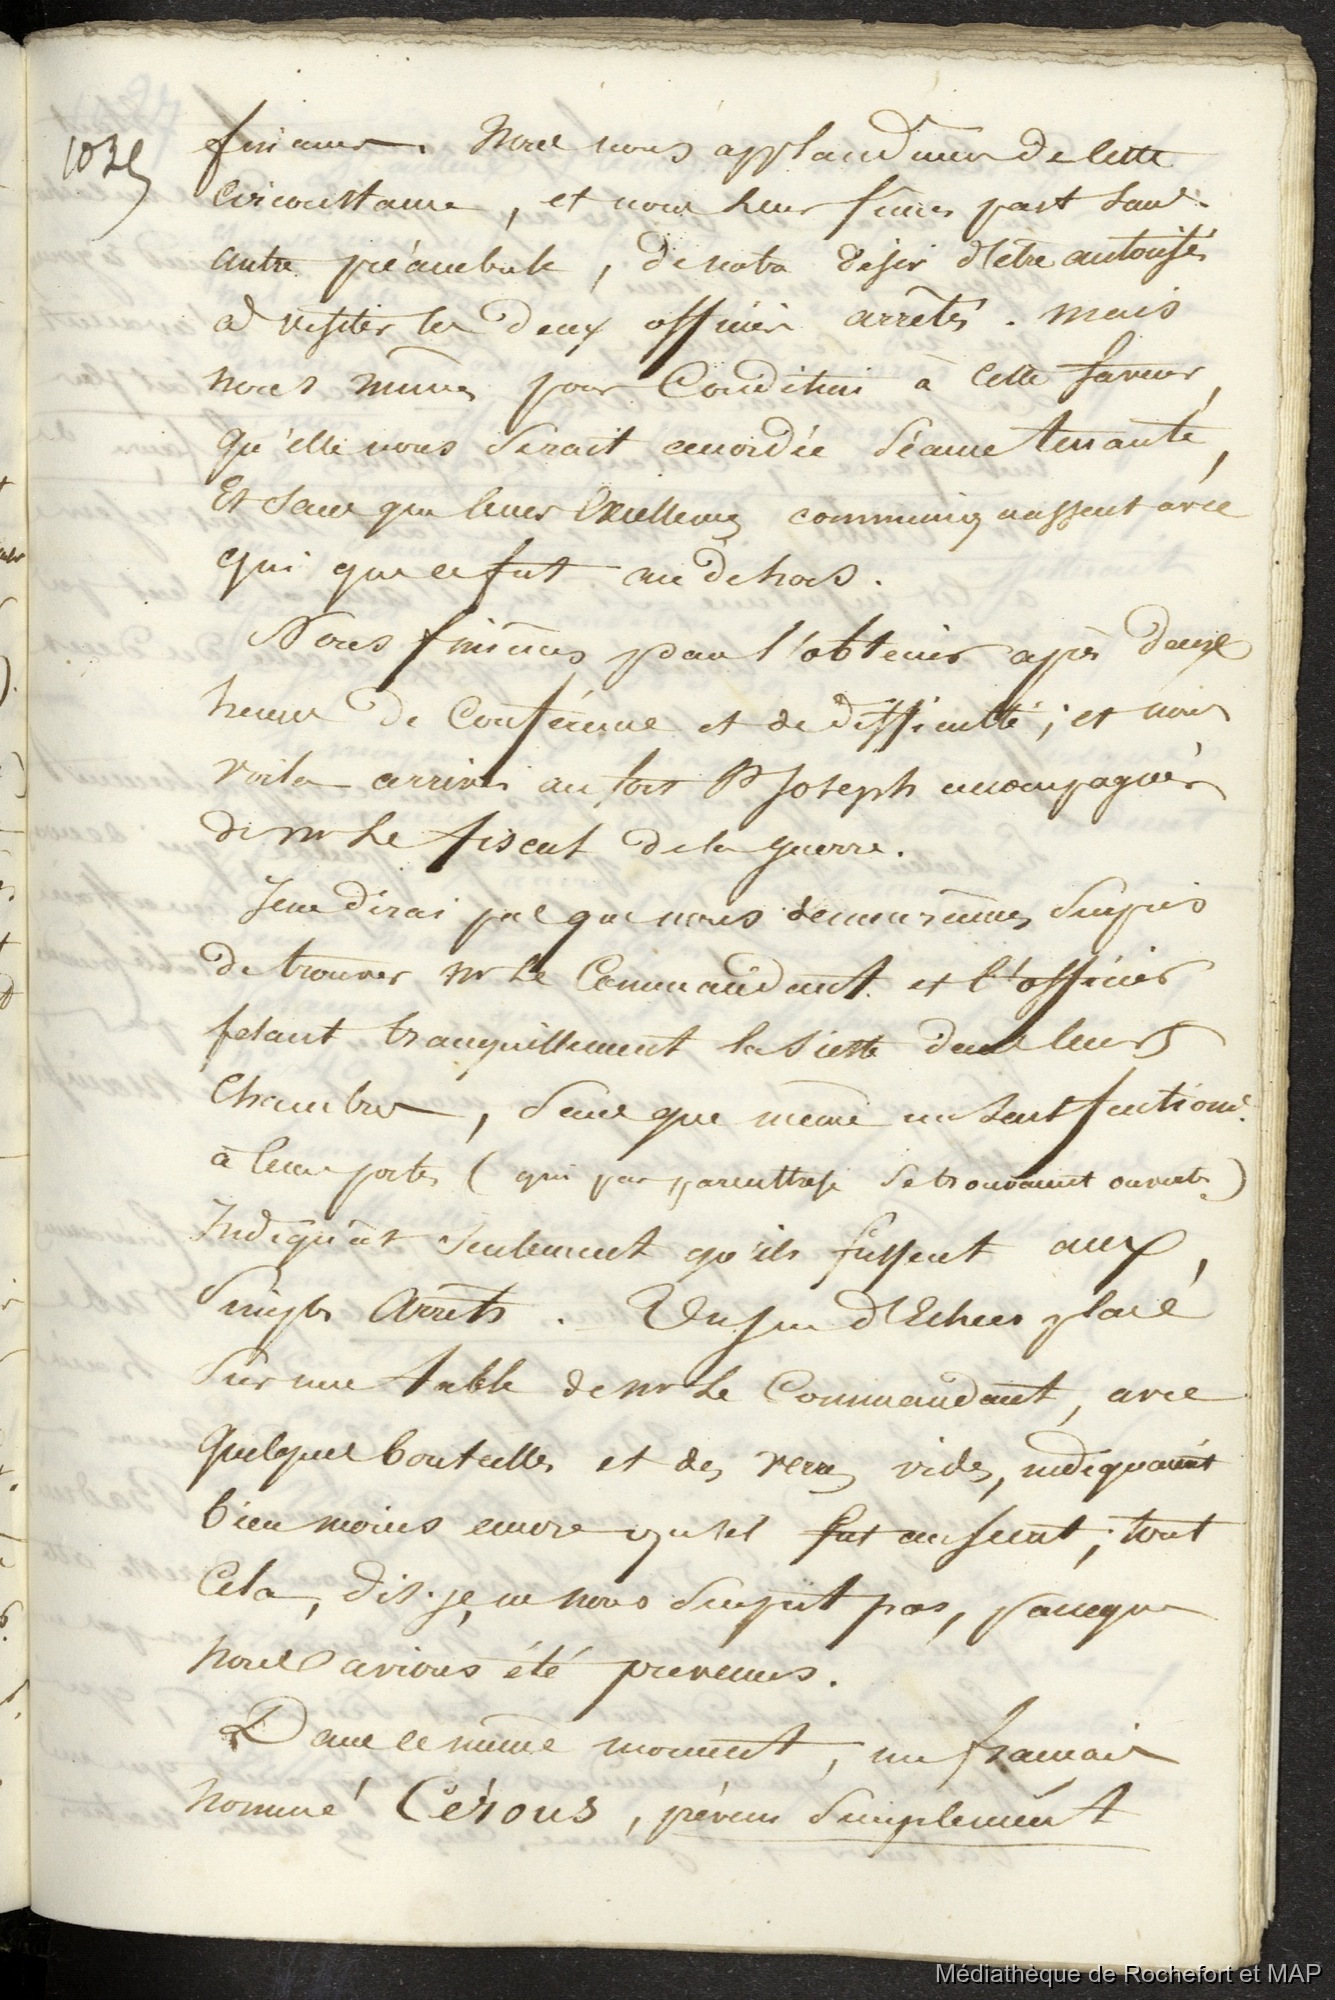 103
finances. Nous nous applaudimes de cette
circonstance, et nous leur fimes part sans
autre préambule, de notre désir d'être autorisés
à visiter les deux officiers arrêtés. Mais
nous mîmes pour Condition à cette faveur,
qu'elle nous serait accordée séance tenante,
Et sans que leurs Excellences communiquassent avec
qui que ce fut au dehors.
Nous finîmes par l'obtenir après deux
heures de Conférence et de difficulté; et nous
voila arrivés au fort St Joseph accompagnés
de Mr Le fiscal de la guerre.
Je ne dirai pas que nous demeurâmes surpris
de trouver Mr Le Commandant et l'officier
fesant tranquillement la sieste dans leurs
Chambres, sans que même un seul factionre.
à leurs portes (qui par parenthèse se trouvaient ouvertes)
Indiquât seulement qu'ils fussent aux
simples Arrêts. Un jeu d'Echecs placé
sur une table de Mr Le Commandant, avec
quelques bouteilles et des verres vides, indiquaient
bien moins encore qu'il fut au secret; tout
Cela, dis-je, ne nous surprit pas, parceque
nous avions été prévenus.
Dans ce même moment, un français
nommé Cérous, prévenu simplement
Médiathèque de Rochefort et MAP